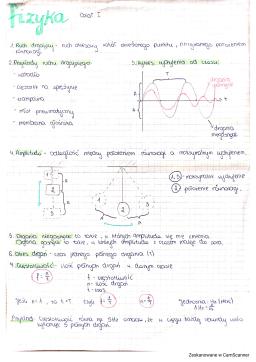 Fizyka część I
1. Ruch drgający - ruch okresowy wokół określonego punktu, nazywanego położeniem
równowagi
2. Przykłady ruchu drgającego 3. Wykres wychylenia od czasu:
- wahadło
- ciężarek na sprężynie
- młot pneumatyczny
- membrana głośnika
T
t
drgania
drgania
4. Amplituda - odległość między położeniem równowagi a maksymalnym wychyleniem.
1, 3 - maksymalne wychylenie
2 - położenie równowagi
1
2
3
A
A
5. Drgania niegasnące to takie, w których amplituda się nie zmienia
to takie, w których amplituda z czasem maleje do zera.
6. Okres drgań - czas jednego pełnego drgania (T)
7. Częstotliwość - ilość pełnych drgań w danym czasie
f = n/t
f - częstotliwość
n - ilość drgań
t - czas
Jeśli n = 1, to t = T. Czyli f = 1/T
Jednostka: Hz (herc)
Częstotliwość równa 5 Hz oznacza, że w ciągu każdej sekundy ciało
wykonuje 5 pełnych drgań.
Zeskanowane w CamScanner